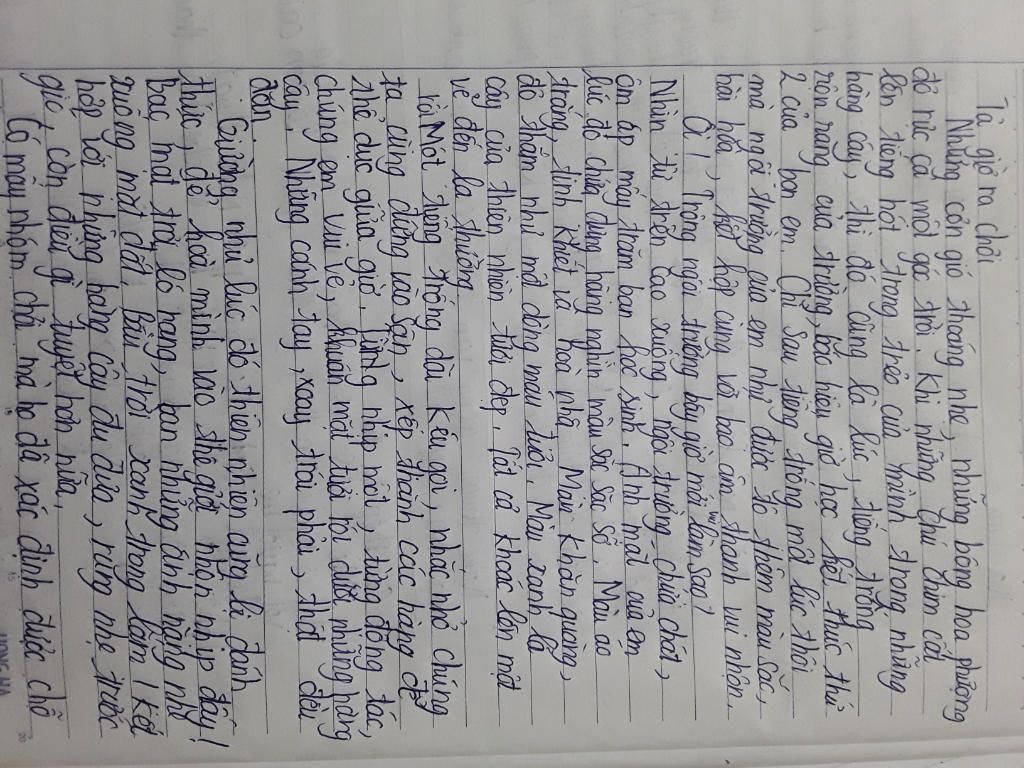 Tả giờ ra chơi
Những cơn gió thoáng nhẹ, những bông hoa phượng
đỏ rực cả một góc trời. Khi những chú chim cất
lên tiếng hót trong trẻo của mình trong những
hàng cây, thì đó cũng là lúc, tiếng trống
rộn ràng của trường, báo hiệu giờ học kết thúc thứ
2 của bọn em. Chỉ sau tiếng trống một lúc thôi
mà ngôi trường của em như được tô thêm màu sắc,
hài hoà, kết hợp cùng với bao âm thanh vui nhộn.
Ôi! Trông ngôi trường bây giờ mới vui làm sao?
Nhìn từ trên cao xuống, ngôi trường chứa chất,
ôm ấp mấy trăm bạn học sinh. Ánh mắt của em
lúc đó chứa đựng hàng nghìn màu sắc sặc sỡ. Màu áo
trắng, tinh khiết là hoa nhã. Màu khăn quàng,
đỏ thắm như một dòng máu tươi. Màu xanh lá
cây của thiên nhiên tươi đẹp. Tất cả khoác lên một
vẻ đến lạ thường
Một tiếng trống dài kêu gọi, nhắc nhở chúng
ta cũng đứng vào sân, xếp thành các hàng để
thể dục giữa giờ. Từng nhịp một, từng động tác,
chúng em vui vẻ, khuôn mặt tươi rói dưới những hàng
cây. Những cánh tay, xoay trái phải, thật đều
đặn.
Giường như lúc đó thiên nhiên cũng bị đánh
thức, để hoà mình vào thế giới nhộn nhịp đấy!
Bác mặt trời ló rạng, ban những ánh nắng nhẹ
xuống mặt đất. Bầu trời xanh trong lắm! Kết
hợp với những hàng cây đu đưa, rung nhẹ trước
gió, còn điều gì tuyệt hơn nữa.
Có mấy nhóm chơi mà họ đã xác định được chỗ